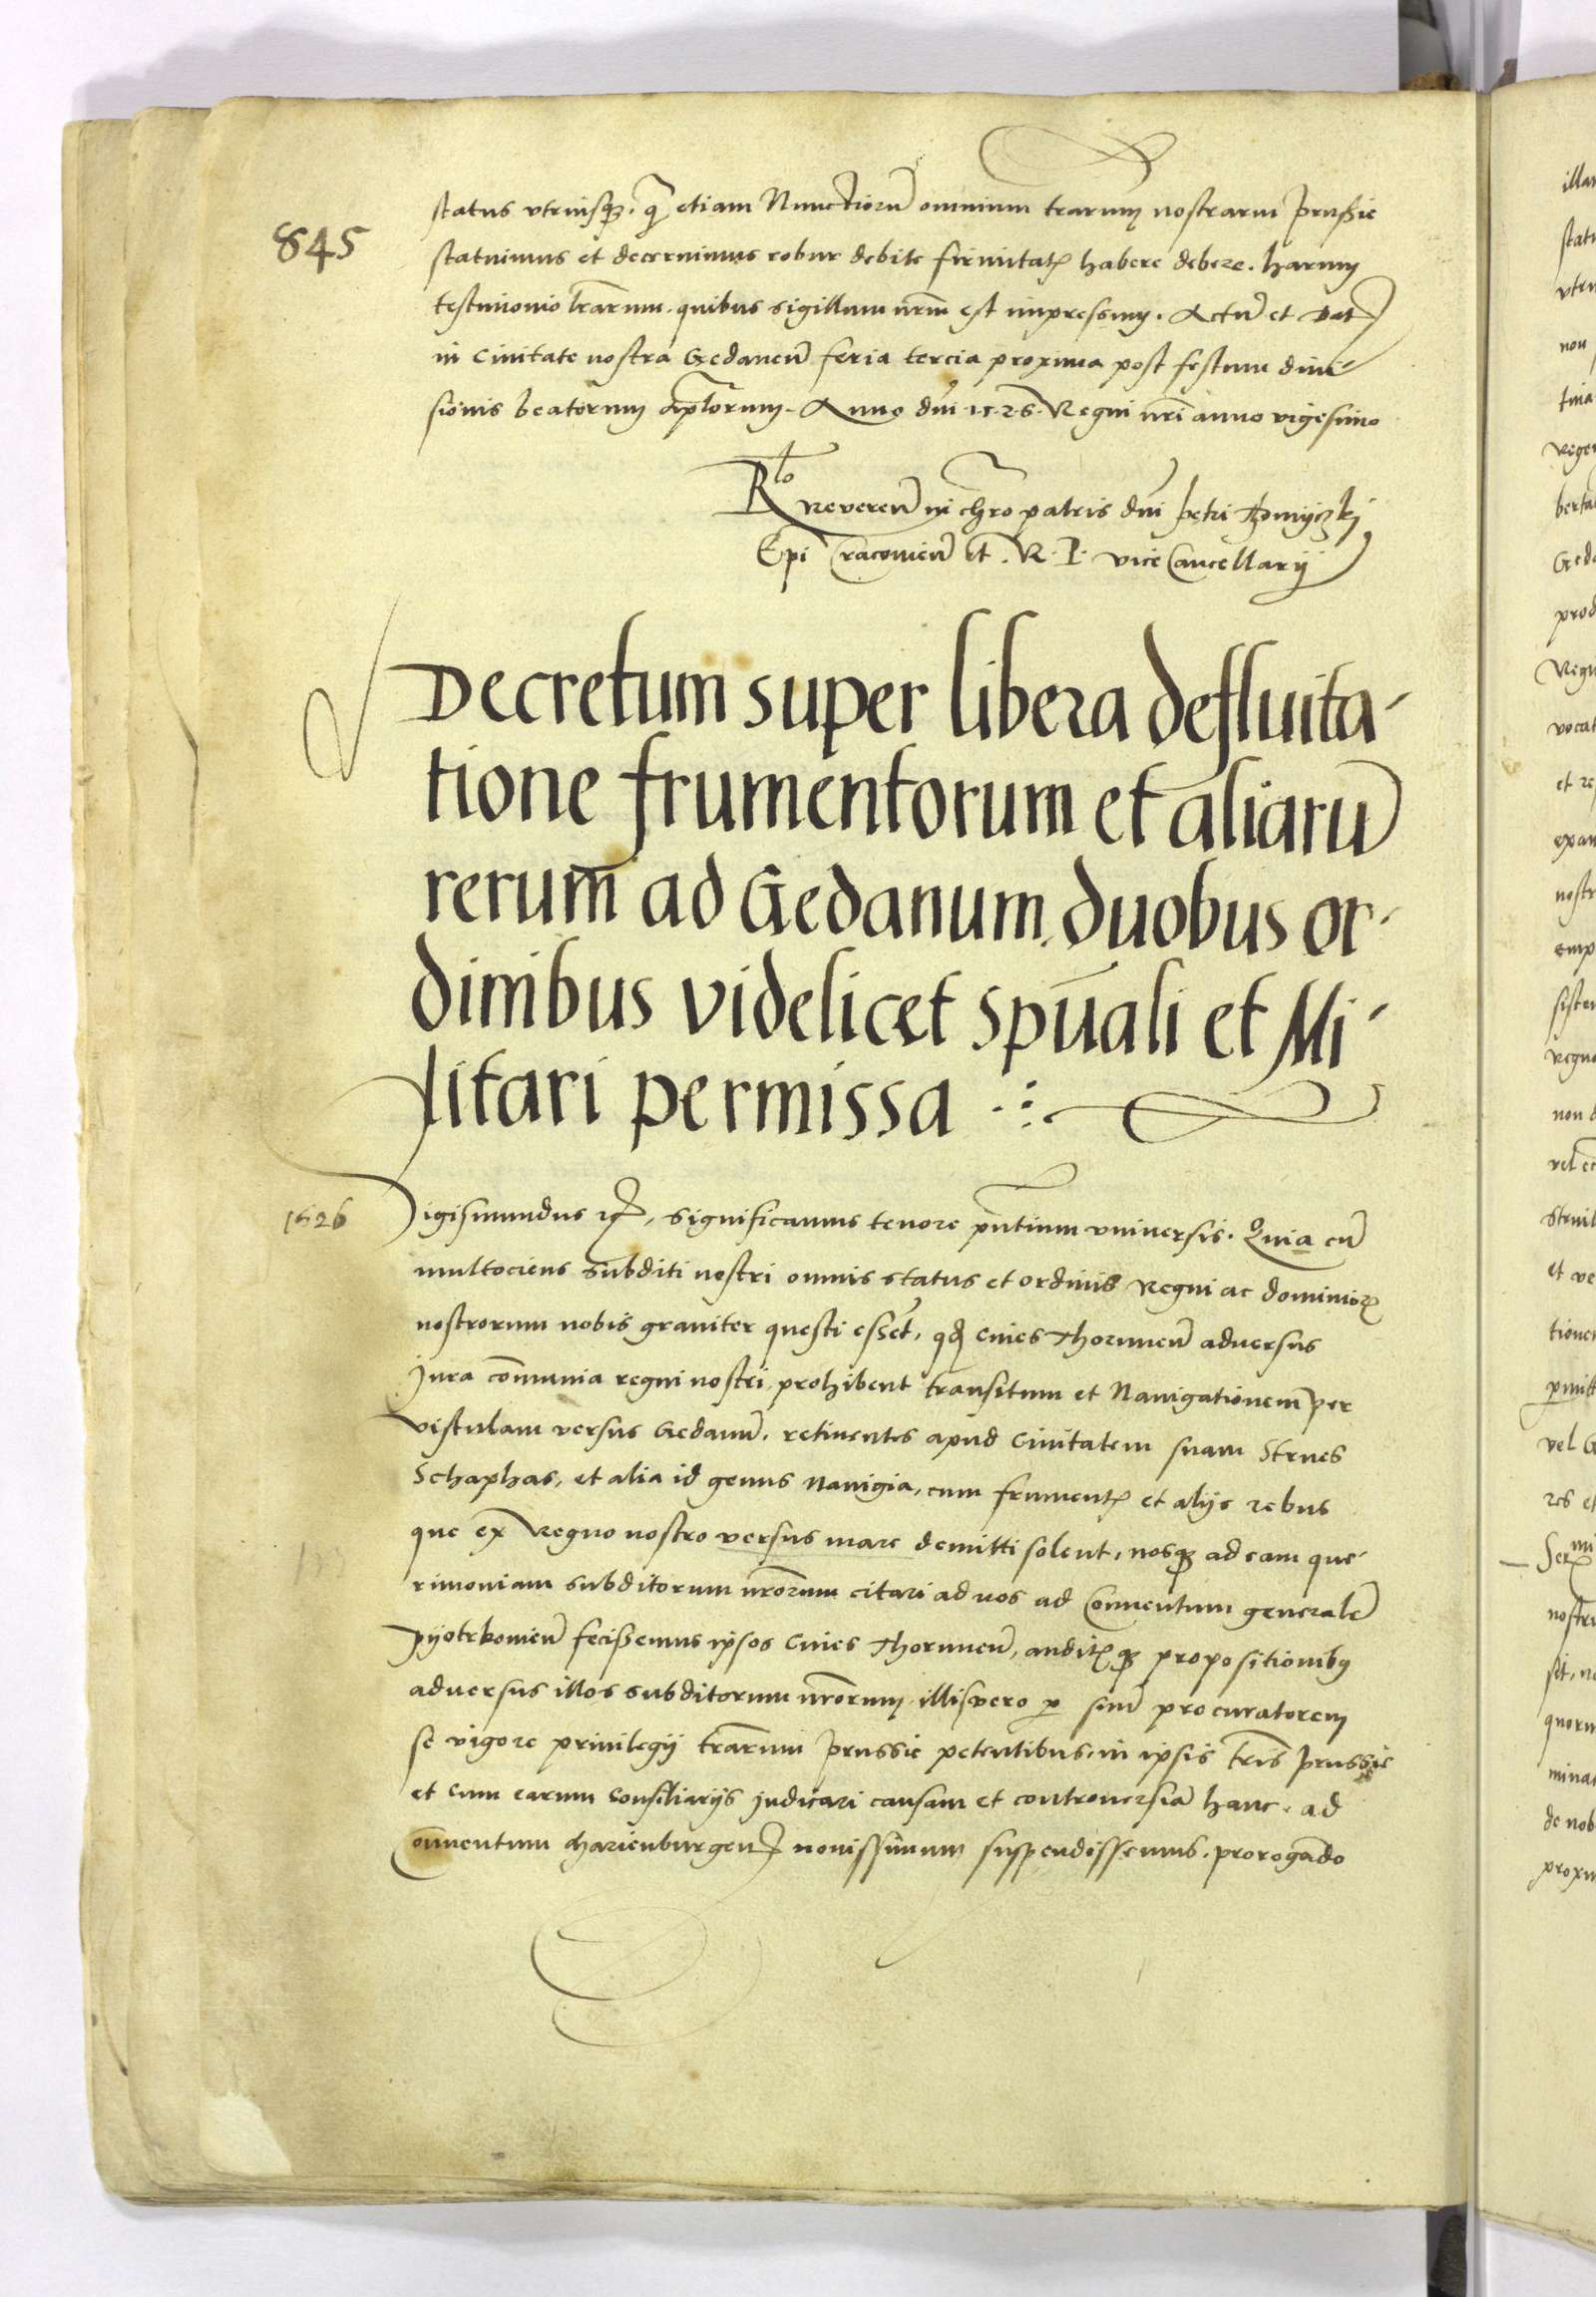 845
status vtriusq3. q̃ etiam Nunctiorũ omnium trarum nostrarum prussie
statuimus et decernimus robur debite firmitatꝭ habere debere. harum
testimonio lrãrum. quibus sigillum nrm̃ est impressum. Actũ et Dat
in Ciuitate nostra Gedaneñ feria tercia proxima post festum diui-
sionis beatorum aplõrum. Anno dñi 1526. Regni nrĩ anno vigesimo
Rlo
Reuereñ in chrõ patris dñi petri Thomyczki
Epi Cracouieñ et. R. P. vice Cancellarij
Decretum super libera defluita-
tione frumentorum et aliarũ
rerum ad Gedanum. duobus or-
dinibus videlicet spũali et Mi-
litari permissa
1526
Sigismundus rẽ, significamus tenore pñtium vniuersis. Quia cũ
multociens subditi nostri omnis status et ordinis Regni ac dominioꝝ
nostrorum nobis grauiter questi essẽt, qd̃ ciues Thoruneñ aduersus
Jura cõmunia regni nostri prohibent transitum et Nauigationem per
vistulam versus Gedanũ, retinentes apud Ciuitatem suam Strues
Schaphas, et alia id genus nauigia, cum frumentꝭ et alijs rebus
que ex Regno nostro versus mare demitti solent, nosq3 ad eam que-
rimoniam subditorum nrõrum citari ad nos ad Conuentum generalẽ
Pyotrkouieñ fecissemus ipsos Ciues Thoruneñ, auditꝭq3 propositionibꝰ
aduersus illos subditorum nrõrum illis vero p suũ procuratorem
se vigore priuilegij trarum prussie petentibus in ipsis trĩs prussie
et cum earum Consiliarijs judicari causam et controuersiã hanc, ad
Conuentum Marienburgeñ nouissimum suspendissemus. prorogãdo